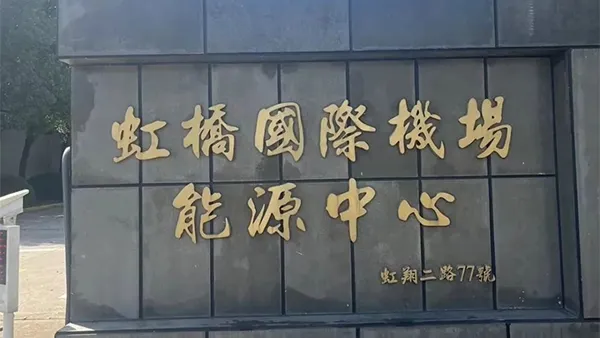 虹橋國際機場
能源中心
虹翔二路77號